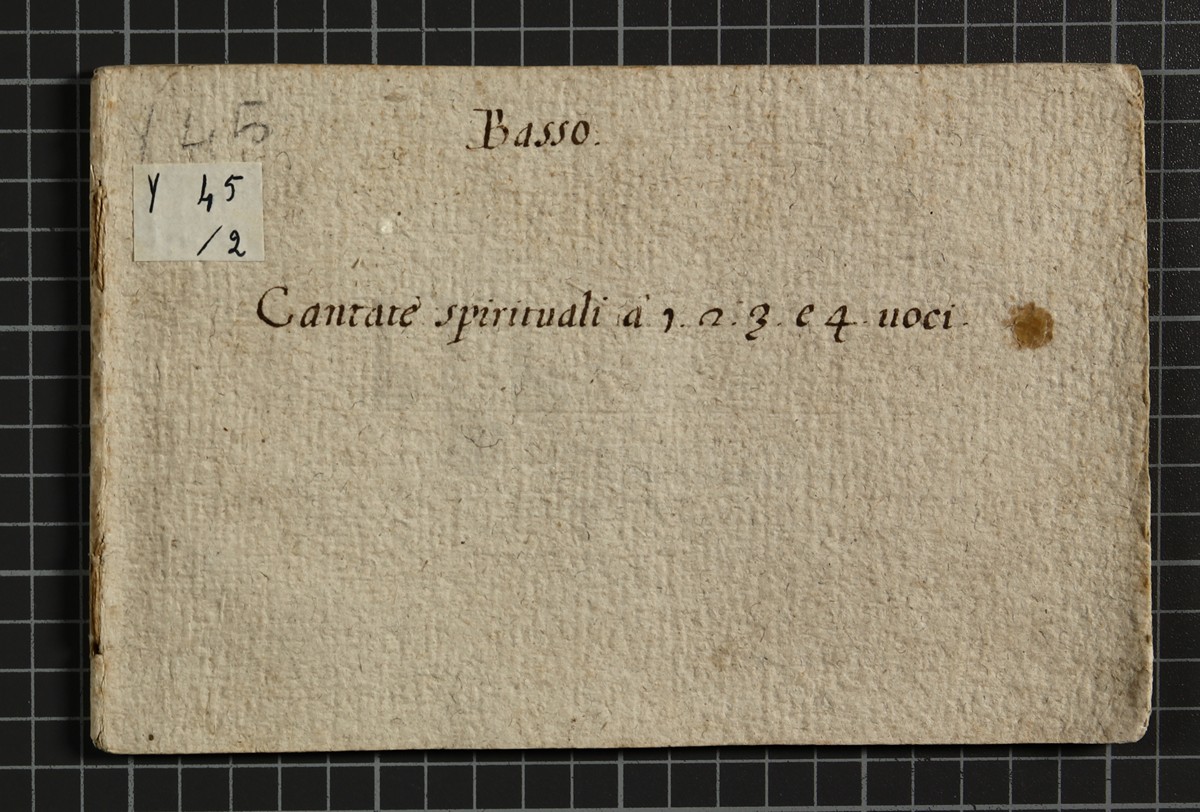 Basso.
Y 45
Y 45
/2
Cantate spirituali à 1. 2. 3. e 4. uoci.